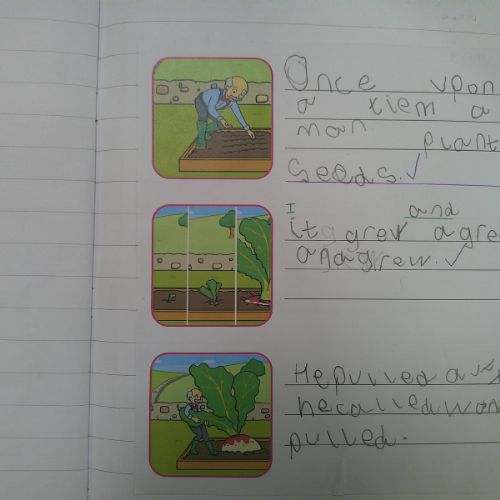 Once upon
a tiem a
man plant
seeds.
I and
it grew agre
anagrew.
He pulled a
he called
pulled.